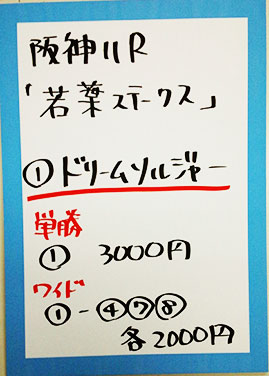 阪神11R
「若葉ステークス」
①ドリームソルジャー
単勝
① 3000円
ワイド
①-④⑦⑧
各2000円